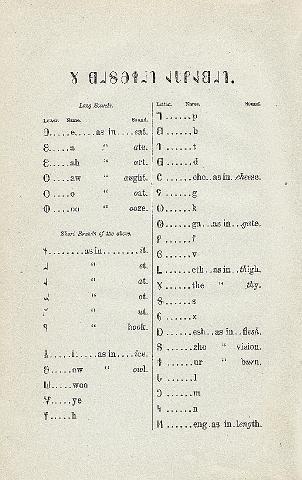 𐐜 𐐔𐐇𐐝𐐀𐐡𐐇𐐓 𐐈𐐢𐐙𐐈𐐒𐐇𐐓.
Long Sounds.
Letter. Name. Sound.
𐐀......e....as in....eat.
𐐁......a " ate.
𐐂......ah " art.
𐐃......aw " aught.
𐐄......o " oat.
𐐅......oo " ooze.
Short Sounds of the above.
𐐆..........as in......it.
𐐇 " et.
𐐈 " at.
𐐉 " ot.
𐐊 " ut.
𐐋 " book.
𐐌......i.....as in....ice.
𐐍......ow " owl.
𐐎......woo
𐐏......ye
𐐐......h
Letter. Name. Sound.
𐐑......p
𐐒......b
𐐓......t
𐐔......d
𐐕......che..as in..cheese.
𐐖......g
𐐗......k
𐐘......ga...as in...gate.
𐐙......f
𐐚......v
𐐛......eth..as in..thigh.
𐐜......the " thy.
𐐝......s
𐐞......z
𐐟......esh..as in..flesh.
𐐠......zhe " vision.
𐐡......ur " burn.
𐐢......l
𐐣......m
𐐤......n
𐐥......eng.as in.length.